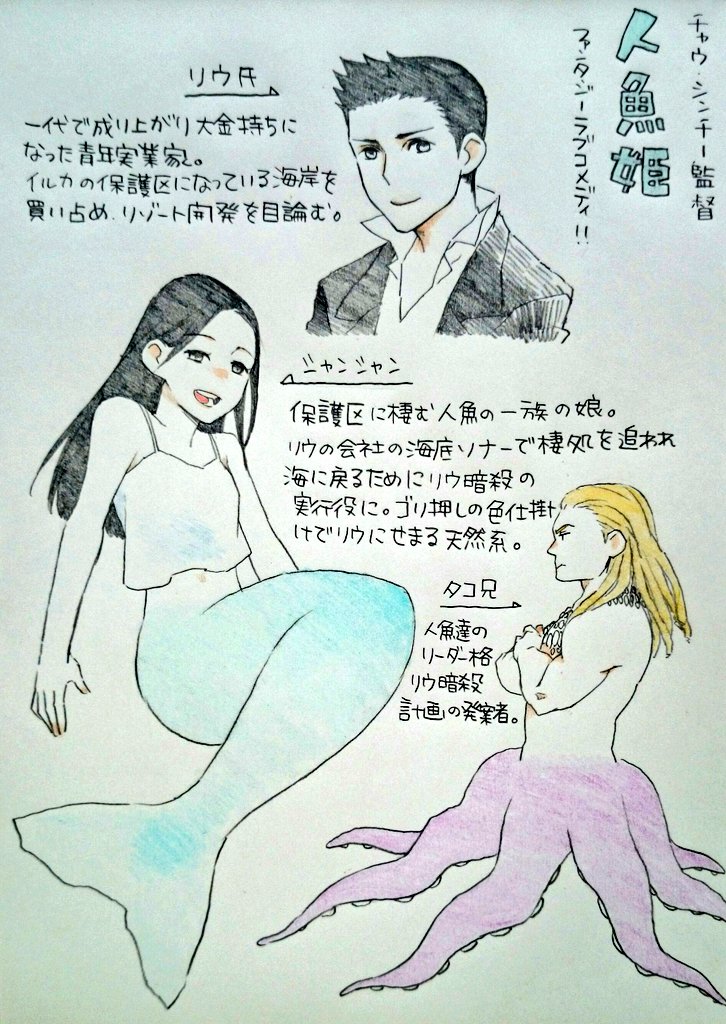 チャウ・シンチー監督
人魚姫
ファンタジーラブコメディ!!
リウ氏
一代で成り上がり大金持ちに
なった青年実業家。
イルカの保護区になっている海岸を
買い占め、リゾート開発を目論む。
ジャンジャン
保護区に棲む人魚の一族の娘。
リウの会社の海底ソナーで棲処を追われ
海に戻るためにリウ暗殺の
実行役に。ゴリ押しの色仕掛
けでリウにせまる天然系。
タコ兄
人魚達の
リーダー格
リウ暗殺
計画の発案者。